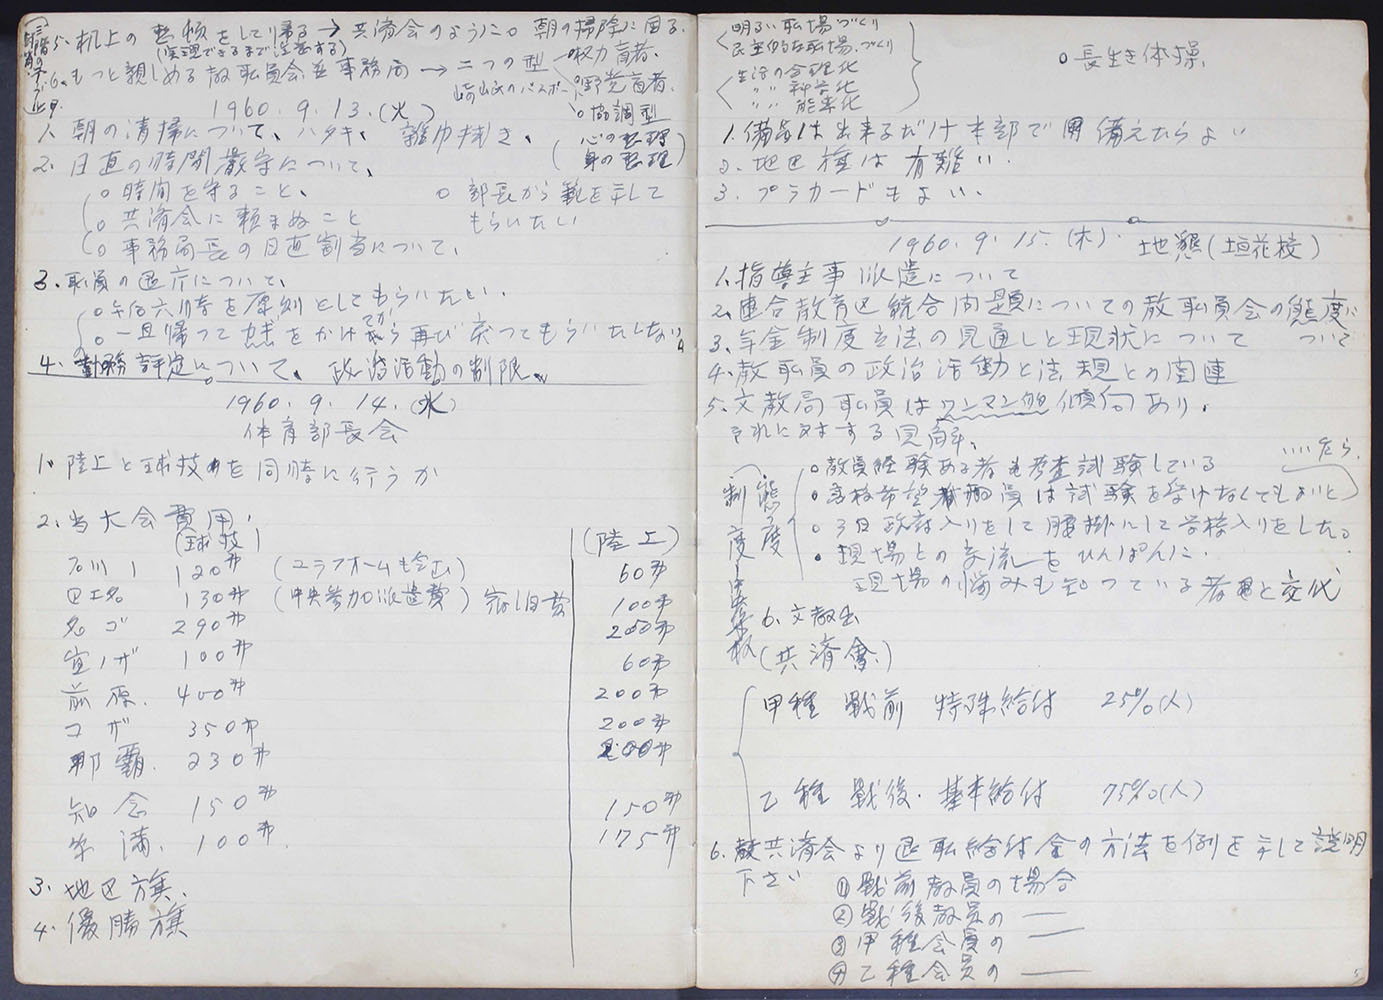 5. 机上の整頓をして帰る→共済会のように○ 朝の掃除に困る.
(実現できるまで注意する)
6. もっと親しめる教職員会並事務局→二つの型
権力育者.
野党育者.
○協調型
1960. 9. 13. (火)
1. 朝の清掃について、ハタキ、雑巾拭き、
(心の整理
身の整理)
2. 日直の時間厳守について、
○時間を守ること、
○部長から範を示して
もらいたい
○共済会に頼まぬこと
○事務局長の日直割当について、
3. 职員の退庁について、
○午后六時を原則としてもらいたい..
○一旦帰って
再び戻ってもらいたしない
4. 勤務評定について、政治活動の制限、
1960. 9. 14. (水)
体育部長会
1. 陸上と球技を同時に行うか
2. 当大会費用、
(球技)
(陸上)
石川 120弗 60弗
130弗 (中央参加派遣費) 100弗
名ゴ 290弗 200弗
宜ノザ 100弗 60弗
前原. 400弗 200弗
コザ 350弗 200弗
那覇. 230弗 200弗
知念 150弗 150弗
糸満. 100弗. 175弗
3. 地区旗.
4. 優勝旗
明るい职場づくり
民主的な职場づくり
生活の合理化
〃〃 科学化
〃〃 能率化
○長生き体操、
1. 備品は出来るだけ本部で備えたらよい
2. 地区種は有難い.
3. プラカードもよい、
1960. 9. 15. (木). 地懇(垣花校)
1. 指導主事派遣について
2. 連合教育区統合問題についての教职員会の態度に
ついて
3. 年金制度立法の見通しと現状について
4. 教职員の政治活動と法規との関連
5. 文教局职員はワンマン的傾向あり.
それに対する見解、
……たら.
態度
制度
○教員経験ある者も考査試験している
○高校希望職員は試験を受けなくてもよいと
政府入りをして腰掛にして学校入りをしたる
・現場との交流をひんぱんに.
現場の悩みも知っている者と交代
6. 文教
(共済會)
甲種 戦前 特殊給付 25%(人)
乙種 戦後. 基本給付 75%(人)
6. 共済会より退职給付金の方法を例を示して説明
下さい
①戦前教員の場合
②戦後教員の 〃
③甲種会員の 〃
④乙種会員の 〃
5